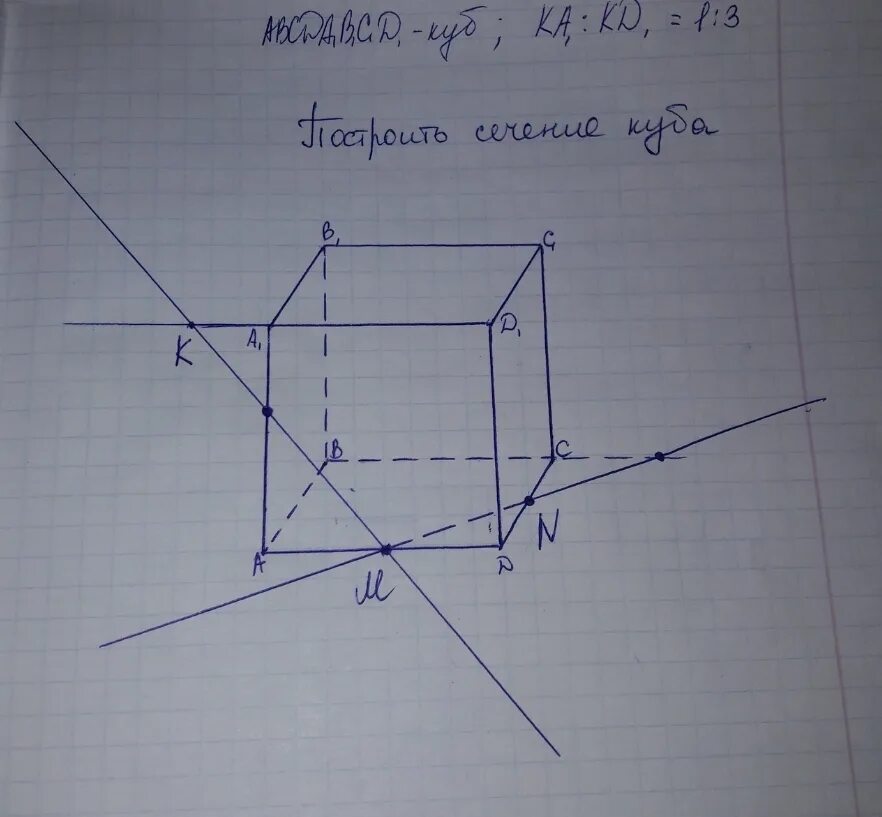 ABCDA₁B₁C₁D₁ - куб ; KA₁ : KD₁ = 1:3
Построить сечение куба
B₁ C₁
A₁ D₁
K
B C
N
A M D